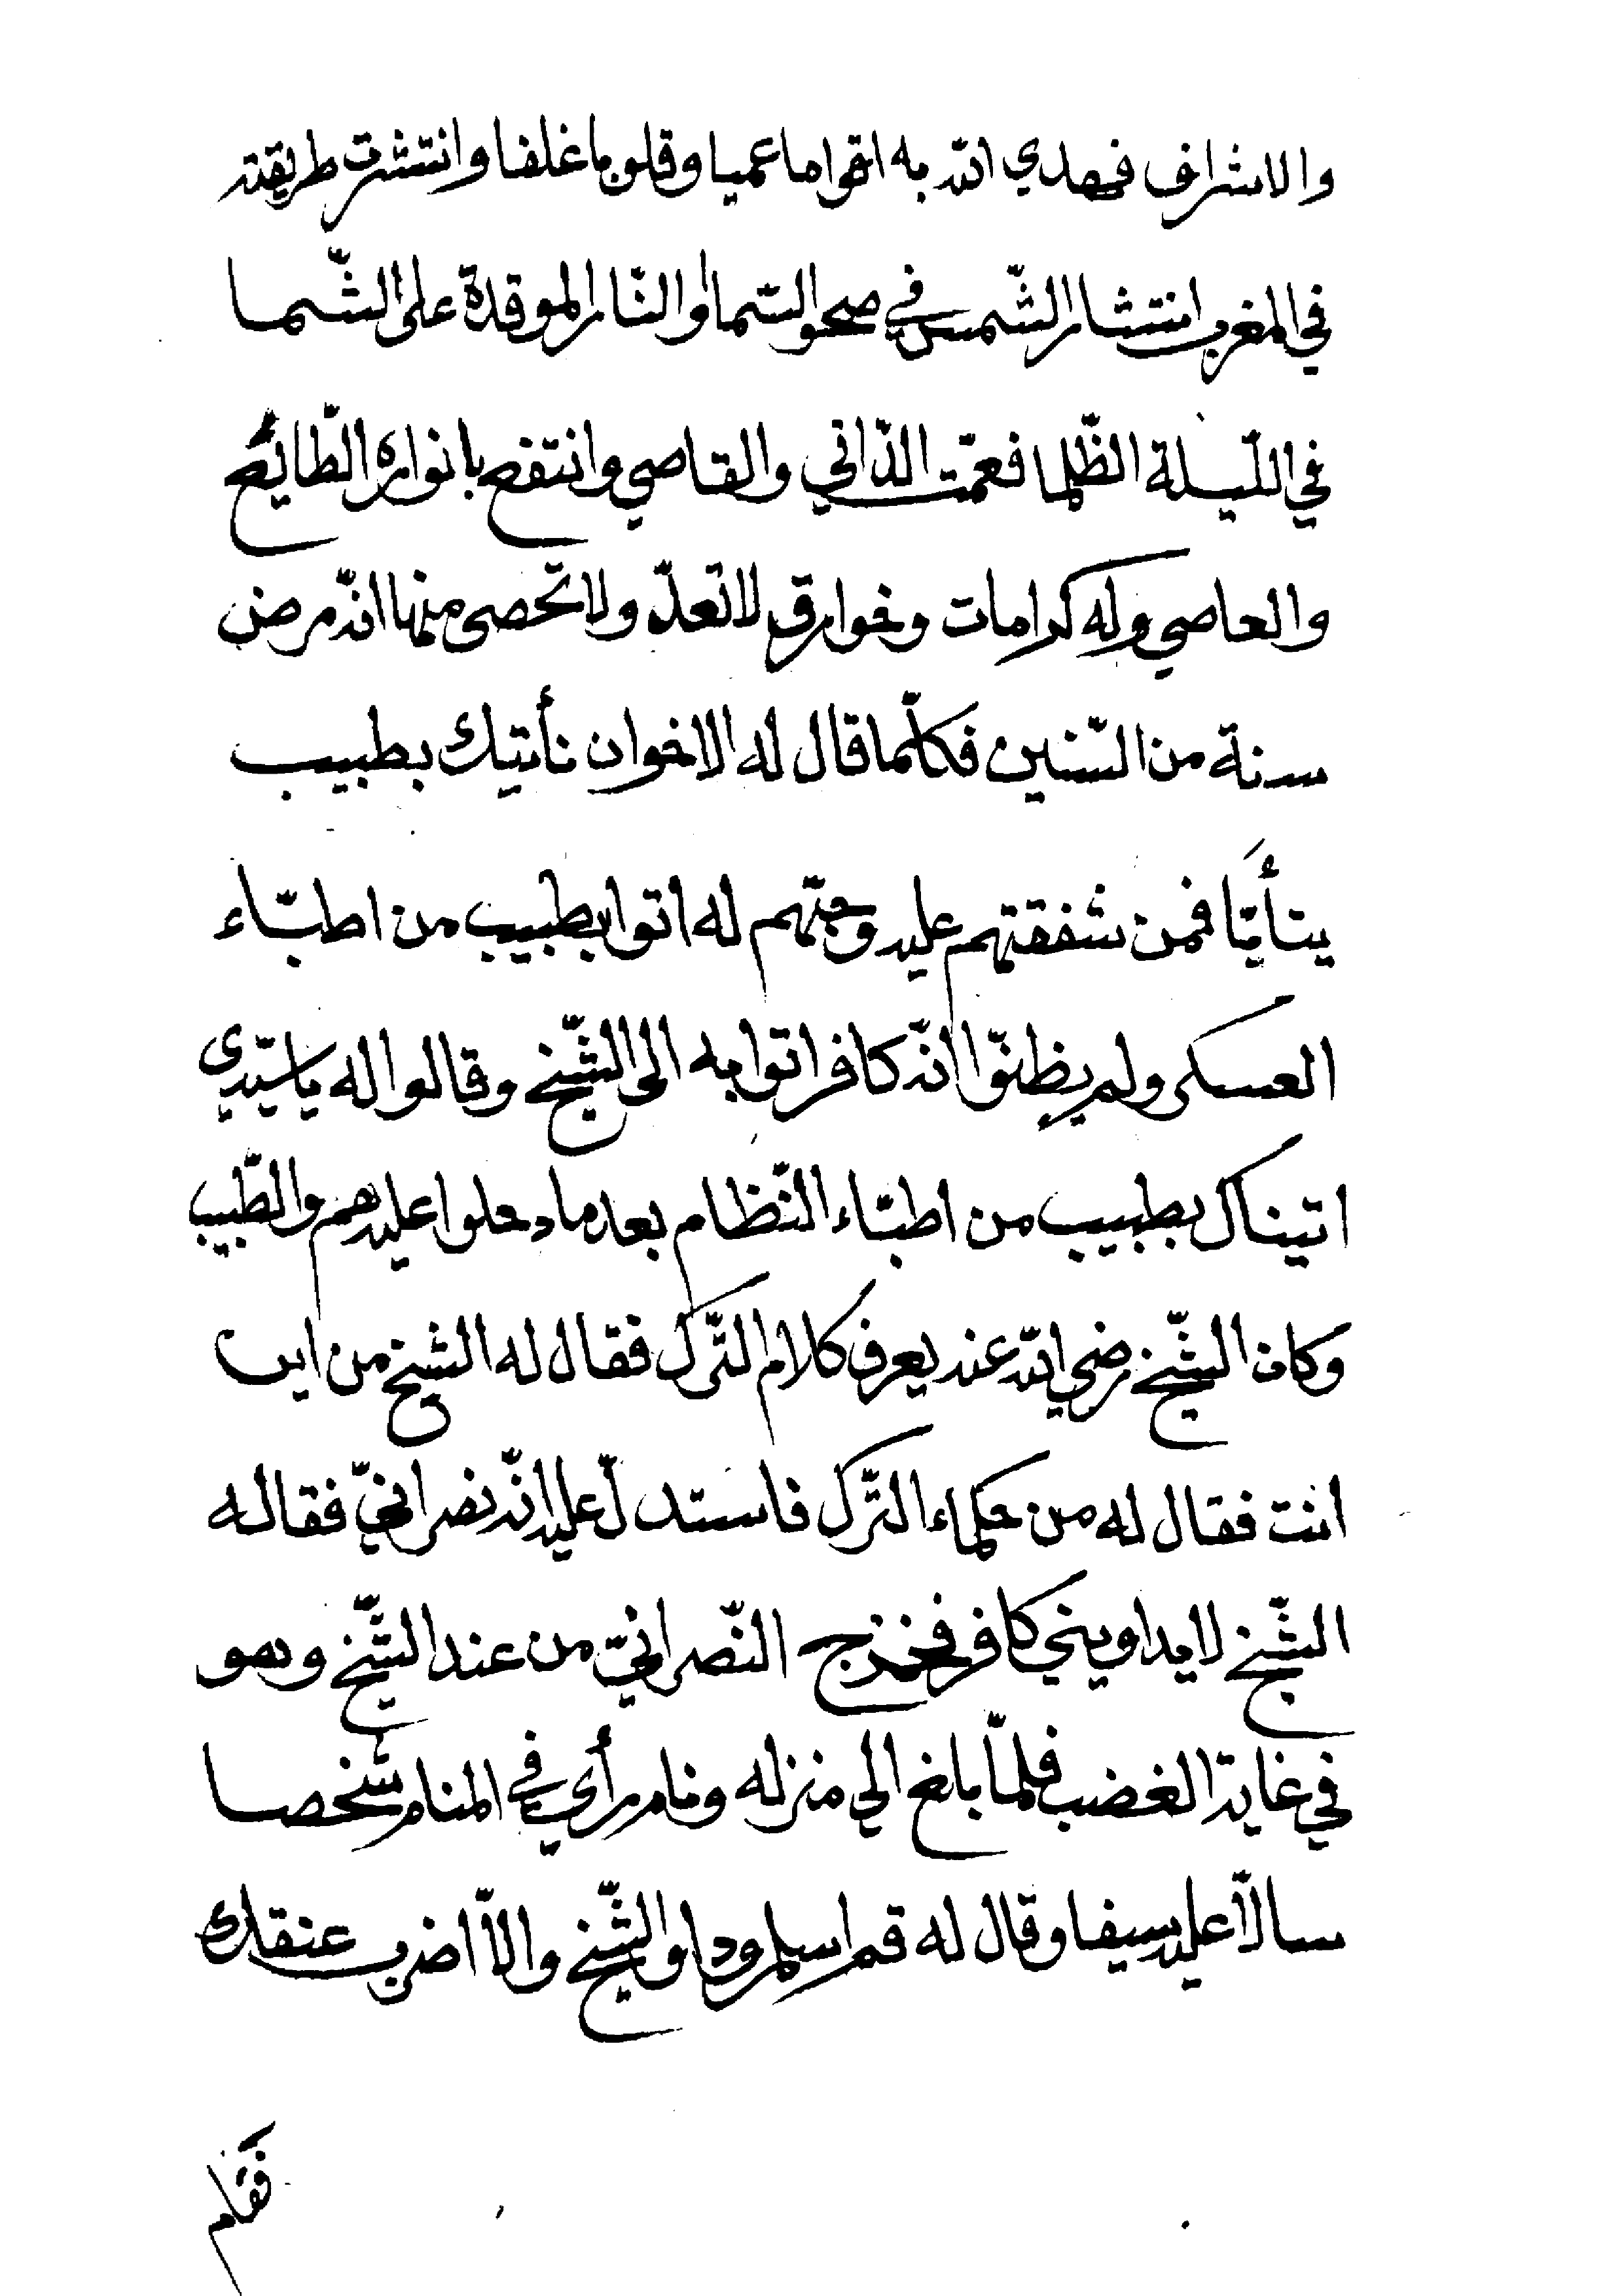 والاشراف فهدي الله به اقواما عميا وقلوبا غلفا وانتشرت طريقته
في المغرب انتشار الشّمس في صحو السّما او النّار الموقدة على الشّما
في اللّيلة الظّلما فعمّت الدّاني والقاصي وانتفع بانواره الطّايع
والعاصي وله كرامات وخوارق لا تعدّ ولا تحصى منها انّه مرض
سنة من السّنين فكلّما قال له الاخوان نأتيك بطبيب
يتأبّا فمن شفقتهم عليه وحبّهم له اتوا بطبيب من اطبّاء
العسكر ولم يظنّوا انّه كافر اتوا به الى الشّيخ وقالوا له يا سيّدي
اتيناك بطبيب من اطبّاء النّظام بعد ما دخلوا عليه هم والطّبيب
وكان الشّيخ رضي الله عنه يعرف كلام التّرك فقال له الشيخ من اين
انت فقال له من حكماء التّرك فاستدلّ عليه انّه نصرانيّ فقال له
الشّيخ لا يداويني كافر فخرج النّصرانيّ من عند الشّيخ وهو
في غاية الغضب فلمّا بلغ الي منزله ونام رأي في المنام شخصا
سالّا عليه سيفا وقال له قم اسلم وداو الشّيخ والّا اضرب عنقك
فقام